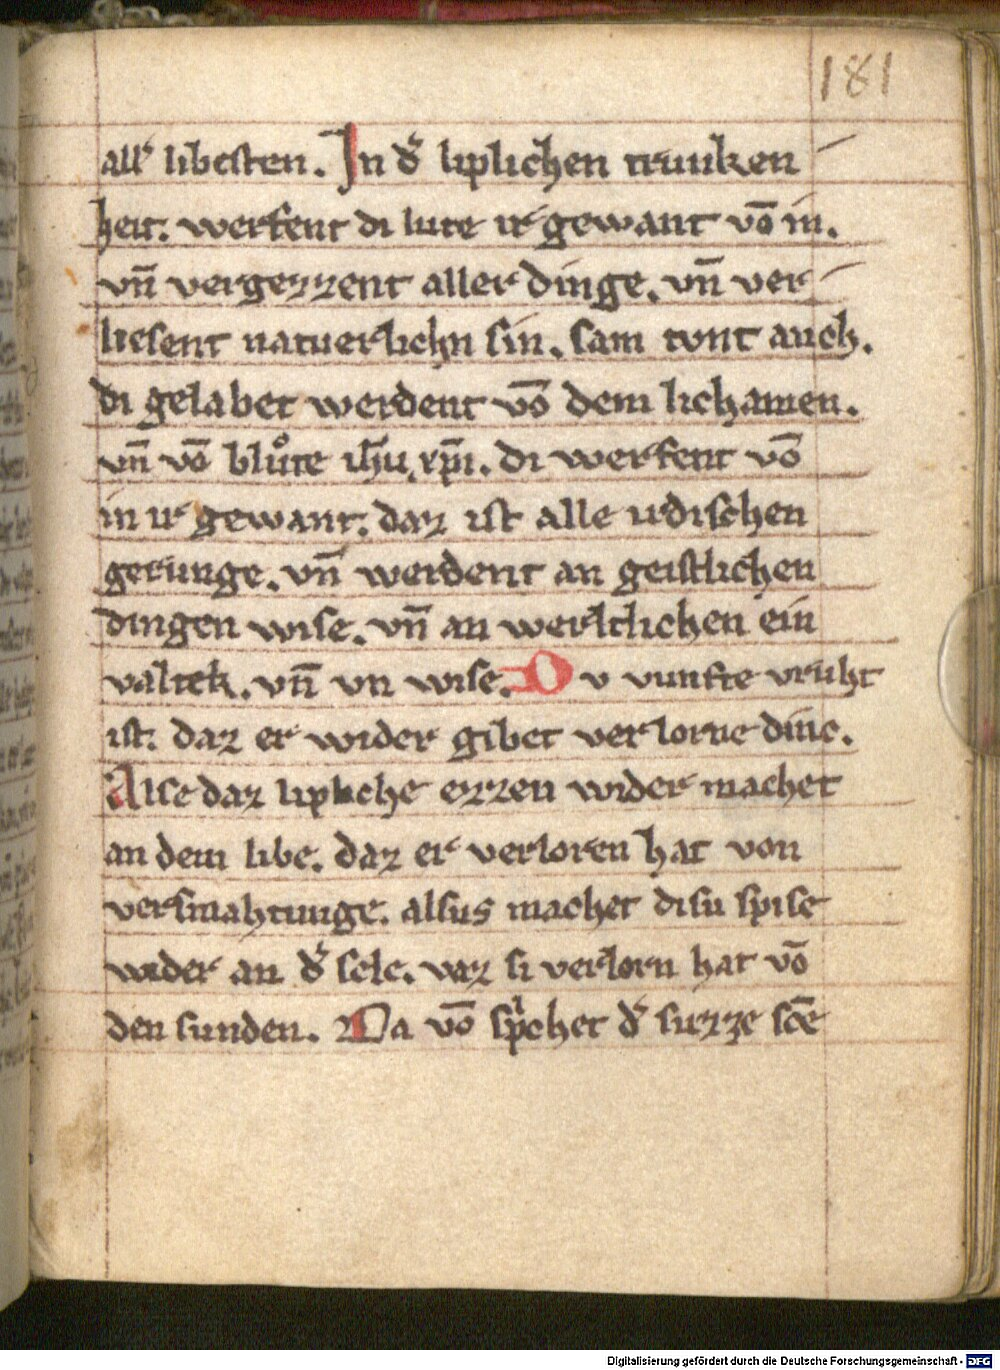 181
all᷑ libesten. In d᷑ liplichen trunken
heit. werfent di lute ir gewant vō in.
vn̄ vergezzent aller dinge. vn̄ ver
liesent natuerlichn sin. sam tvnt auch.
di gelabet werdent vō dem lichamen.
vn̄ vō bluͦte ih̄u xp̄i. di werfent vō
in ir gewant. daz ist alle irdischen
gerunge. vn̄ werdent an geistlichen
dingen wise. vn̄ an werltlichen ein
valtek. vn̄ vn wise. Dv vunfte vruht
ist. daz er wider gibet verlorne dinc.
Alse daz lipliche ezzen wider machet
an dem libe. daz er verloren hat von
versmahtunge. alsus machet disu spise
wider an d᷑ sele. waz si verlorn hat vō
den sunden. Da vō sp͛chet d᷑ suzze sc̄e
Digitalisierung gefördert durch die Deutsche Forschungsgemeinschaft - DFG